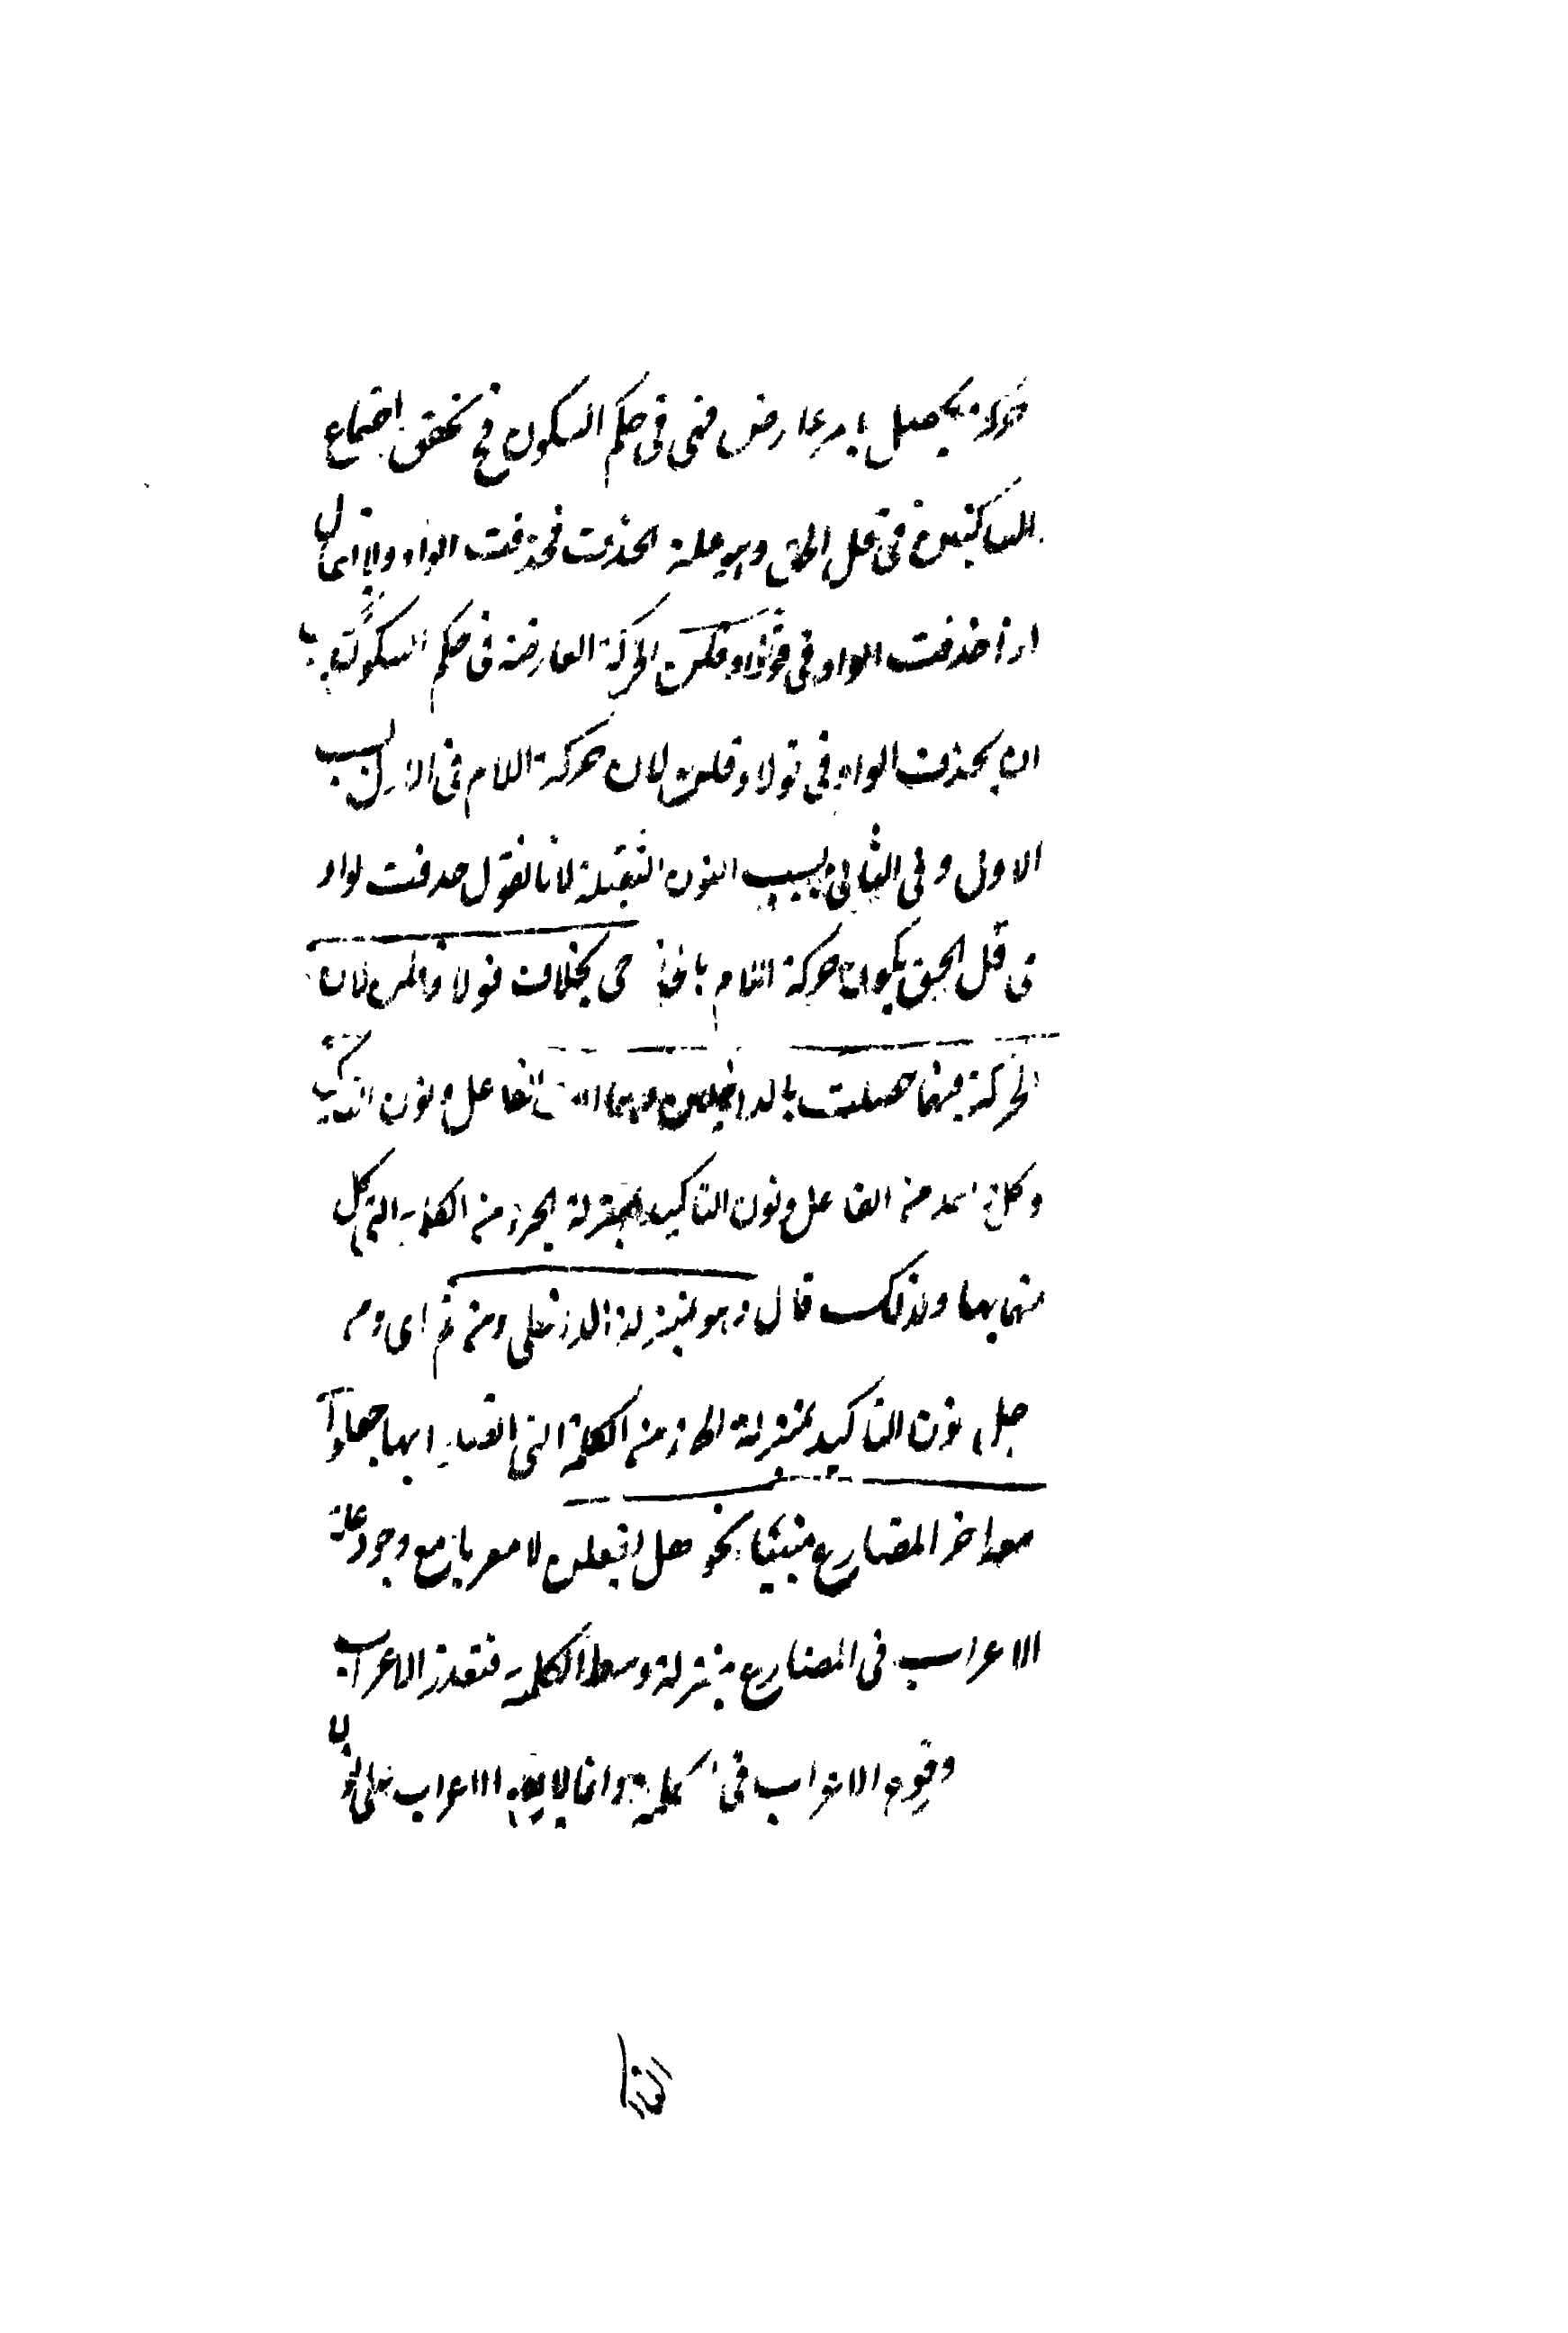 يحصل بامر عارض فهى فى حكم السكون فح تحقق اجتماع
الساكنين فى قل الحق وهو علة الحذف فحذفت الواو ولا يقال
اذا حذفت الواو فى قل الحركة العارضة فى حكم السكون
ان يحذف الواو فى قولا وقولن لان حركة اللام فى بسبب
الاول وفى الثانى بسبب النون الثقيلة لانا نقول حذفت الواو
فى قل الحق لكون حركة اللام بالخارجى بخلاف قولا وقولن لان
الحركة فيهما حصلت بالداخلين وهما الف الفاعل ونون التاكيد
وكل واحد من الفاعل ونون التاكيد بمنزلة الجزء من الكلمة التى
بها ولذلك قال وهو بمنزلة الداخلى ومن ثم اى ومن
جعل نون التاكيد بمنزلة الجزء من الكلمة التى اتصلت بها جعلوا
معه اخر المضارع مبنيا نحو هل يفعلن لا معربا مع وجود علة
الاعراب فى المضارع بمنزلة وسط الكلمة فتعذر الاعراب
وقوع الاعراب فى الكلمة وانما لا الاعراب على